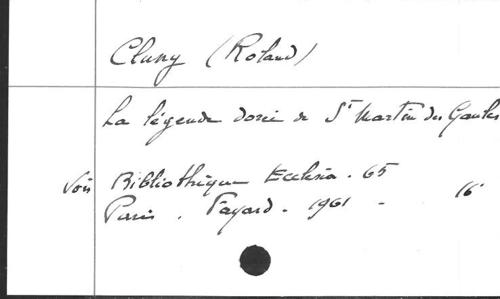 Cluny (Roland)
La légende dorée de St Martin des Gaules
Voir Bibliothèque Ecclesia. 65
Paris. Fayard. 1961 - 16°